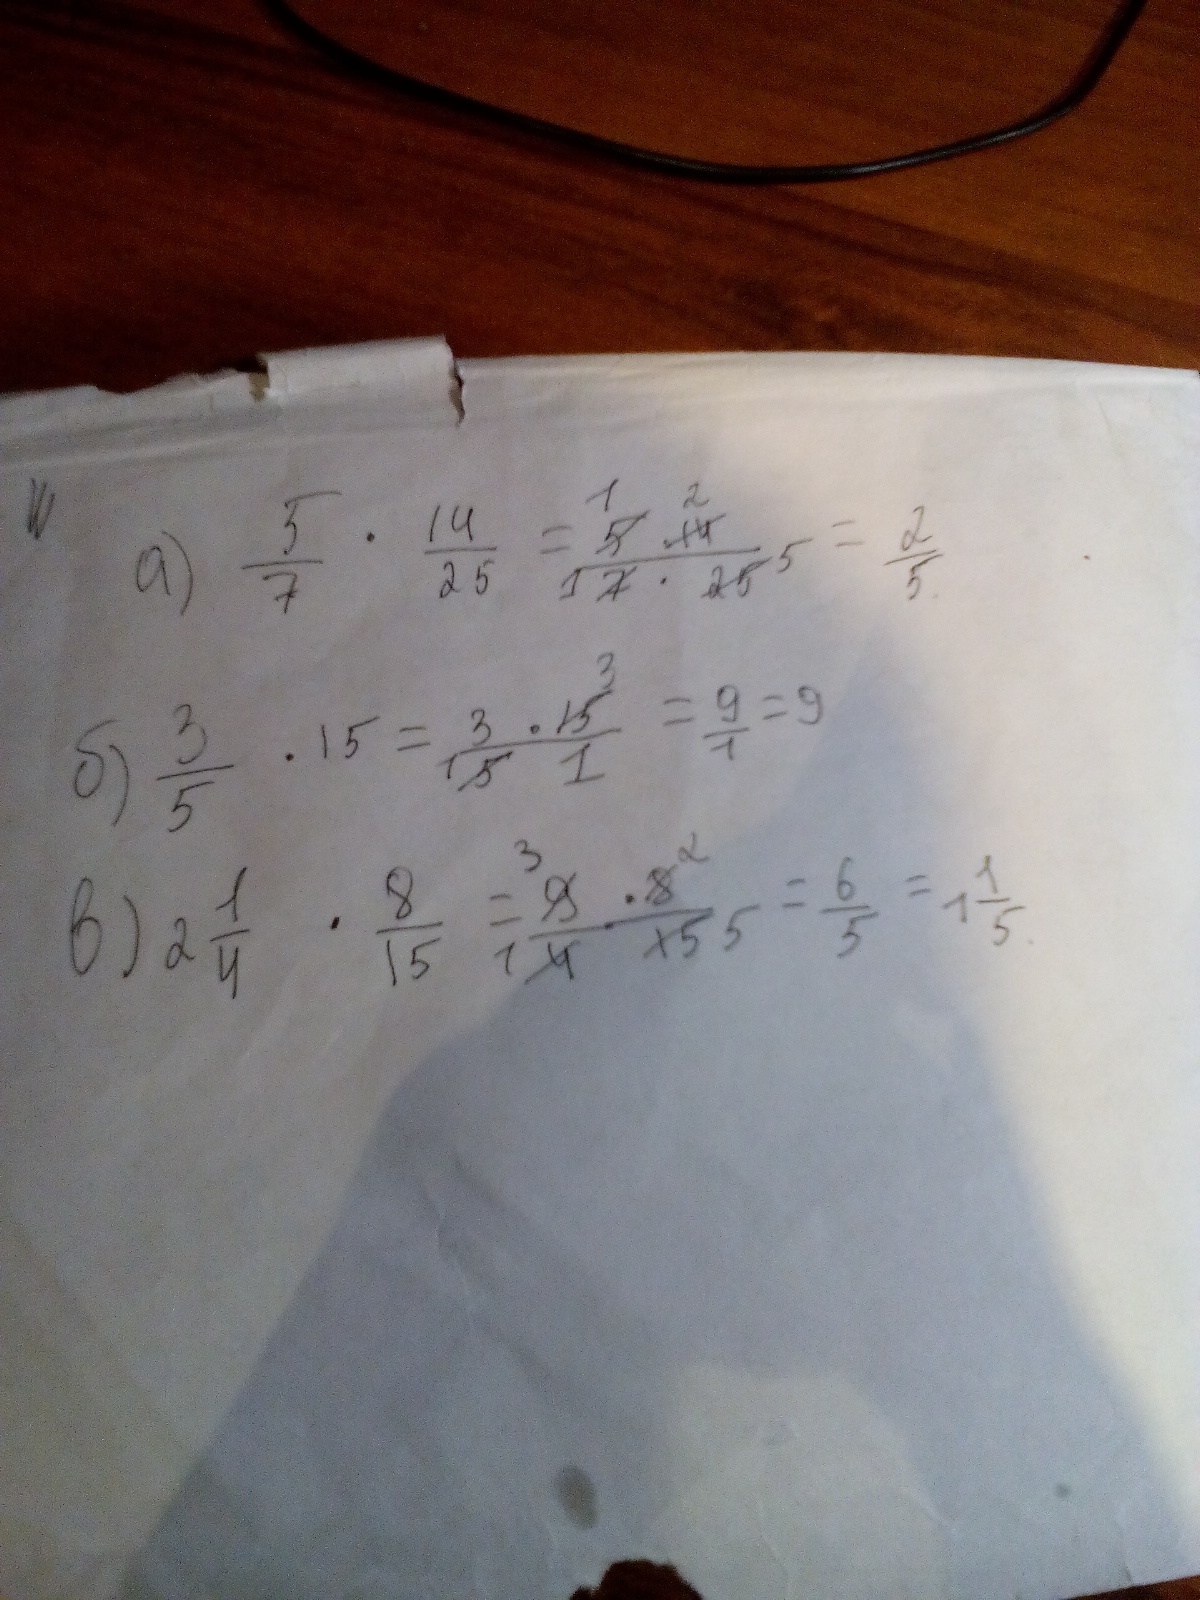 а) 5/7 · 14/25 = 1 5 · 14 2 / 1 7 · 25 5 = 2/5
б) 3/5 · 15 = 3 · 15 3 / 1 5 1 = 9/1 = 9
в) 2 1/4 · 8/15 = 3 9 · 8 2 / 1 4 · 15 5 = 6/5 = 1 1/5